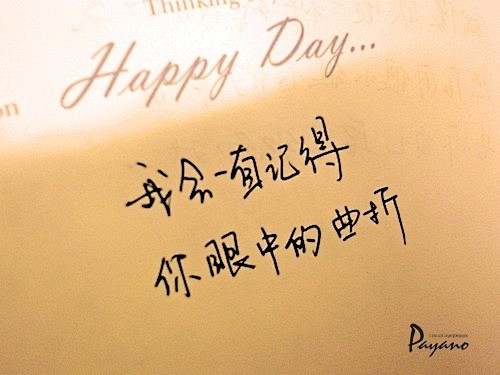 Thinking
Happy Day...
on
我会一直记得
你眼中的曲折
Payano